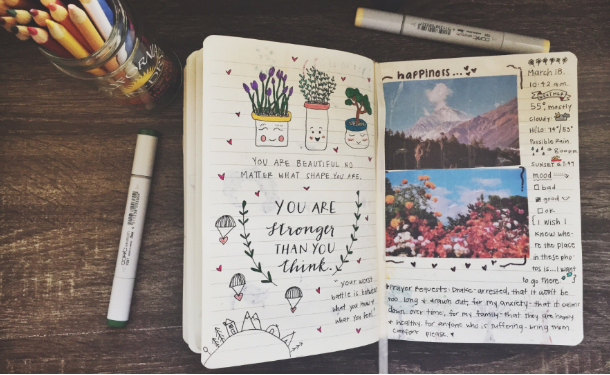 YOU ARE BEAUTIFUL NO
MATTER WHAT SHAPE YOU ARE.
YOU ARE
stronger
THAN YOU
think.
"your worst
battle is between
what you know &
what you feel"
happiness...
March 18.
10:42 a.m.
55° mostly
cloudy
Possible Rain
sunset
mood
bad
good
ok
I wish I
knew whe-
re the place
in these pho
tos is... I want
to go there.
Prayer Requests: Drake-arrested, that it won't be
too long & drawn out, for my anxiety-that it calms
down over time, for my family-that they are happy
& healthy, for anyone who is suffering-bring them
comfort please.